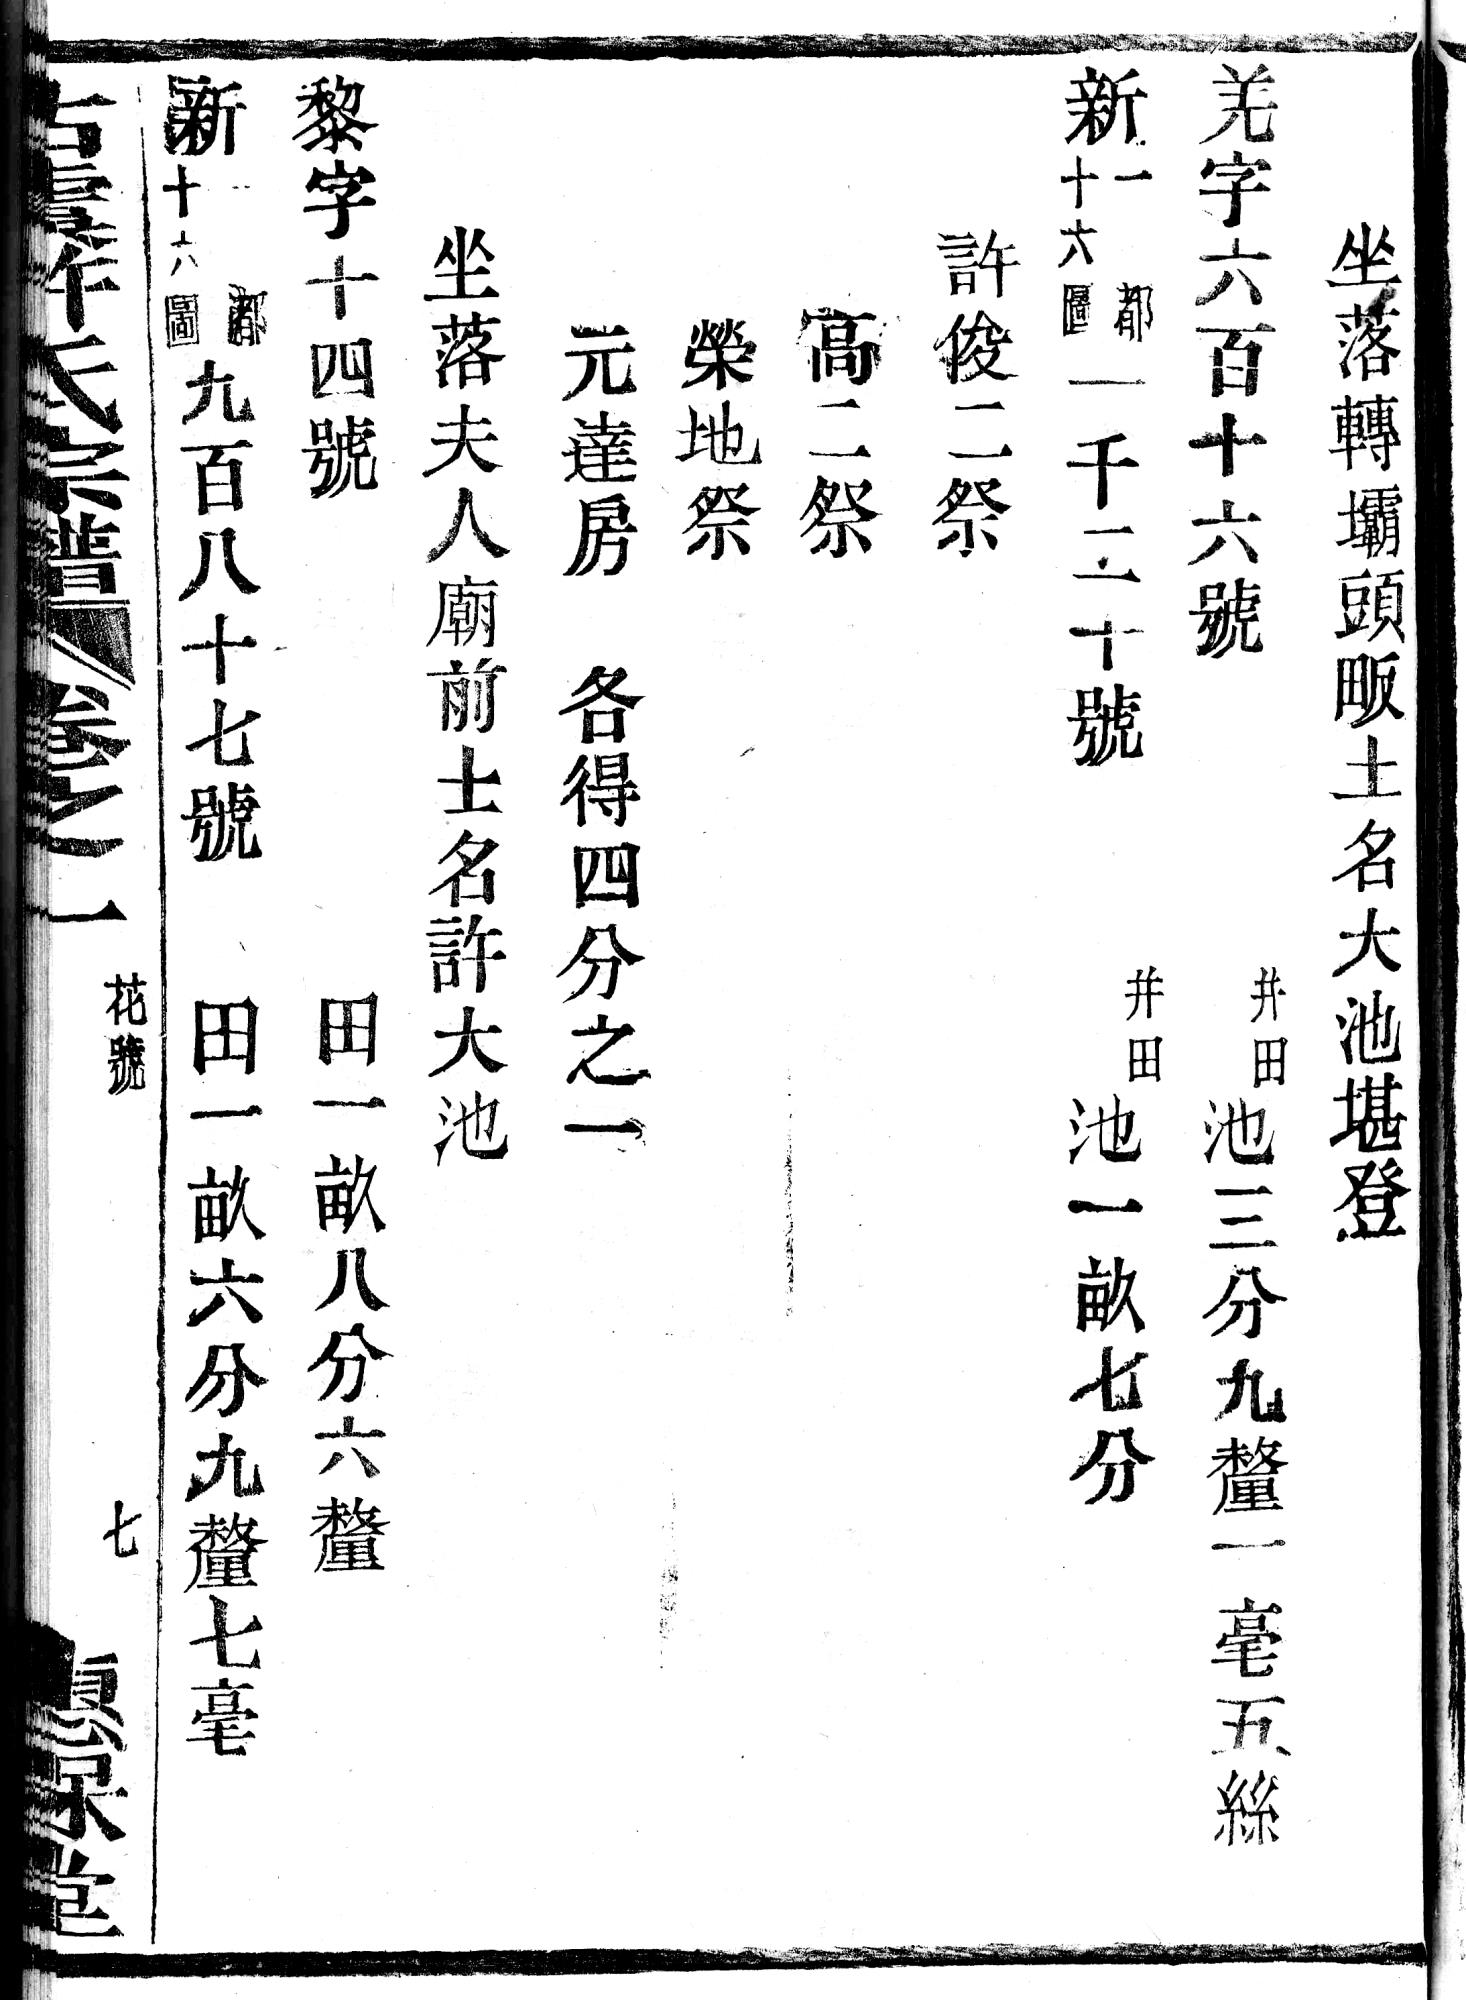 坐落轉壩頭畈土名大池堪登
羌字六百十六號　井田池三分九釐一毫五絲
新一都十六圖一千二十號　井田池一畝七分
許俊二祭
高二祭
榮地祭
元達房　各得四分之一
坐落夫人廟前土名許大池
黎字十四號　田一畝八分六釐
新一都十六圖九百八十七號　田一畝六分九釐七毫
氏宗譜　卷之一　花號　七　堂